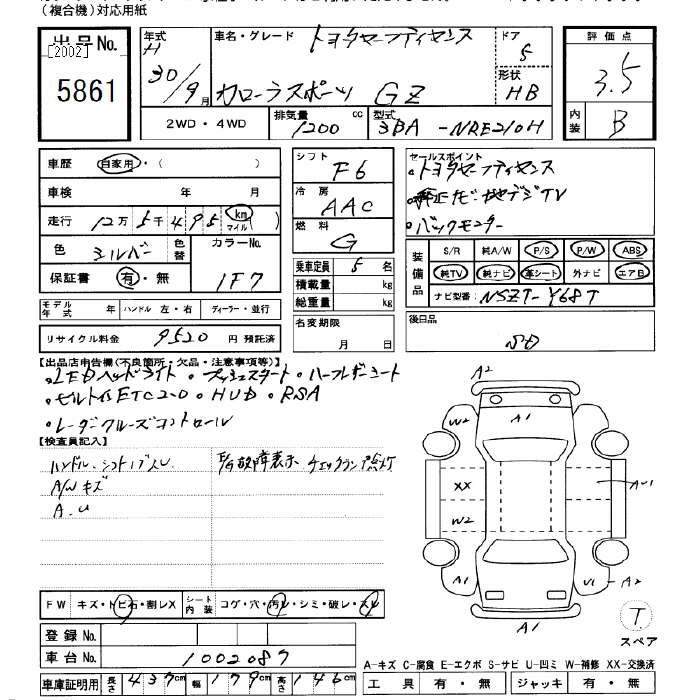 （複合機）対応用紙
出品No.
[2002]
5861
年式 H 30/9 月
車名・グレード トヨタセーフティセンス
カローラスポーツ GZ
ドア 5
形状 HB
評価点 3.5
内装 B
2WD・4WD
排気量 1200 cc
型式 3BA-NRE210H
車歴 自家用・( )
車検 年 月
走行 12万5千495 km マイル ( )
色 シルバー 色替 カラーNo. 1F7
保証書 有・無
シフト F6
冷房 AAC
燃料 G
乗車定員 5 名
積載量 kg
総重量 kg
名変期限 月 日
セールスポイント
・トヨタセーフティセンス
・純正ナビ・地デジTV
・バックモニター
装備品 S/R 純A/W P/S P/W ABS
純TV 純ナビ 革シート 外ナビ エアB
ナビ型番 NSZT-Y68T
モデル年式 年 ハンドル 左・右 ディーラー・並行
リサイクル料金 9520 円 預託済
後日品
【出品店申告欄(不良箇所・欠品・注意事項等)】
・LEDヘッドライト ・プッシュスタート ・ハーフレザーシート
・ビルトインETC2.0 ・HUD ・RSA
・レーダークルーズコントロール
【検査員記入】
ハンドル、シフトノブスレ
A/Wキズ
A.U
故障表示 チェックランプ点灯
A2
A1
W2
XX
W2
A1
AU1
U1-A2
A1
T
スペア
FW キズ・トビ石・割レX
シート内装 コゲ・穴・汚レ・シミ・破レ・スレ
登録No.
車台No. 1002087
車庫証明用 長さ 437cm 幅 179cm 高さ 146cm
A-キズ C-腐食 E-エクボ S-サビ U-凹ミ W-補修 XX-交換済
工具 有・無 ジャッキ 有・無